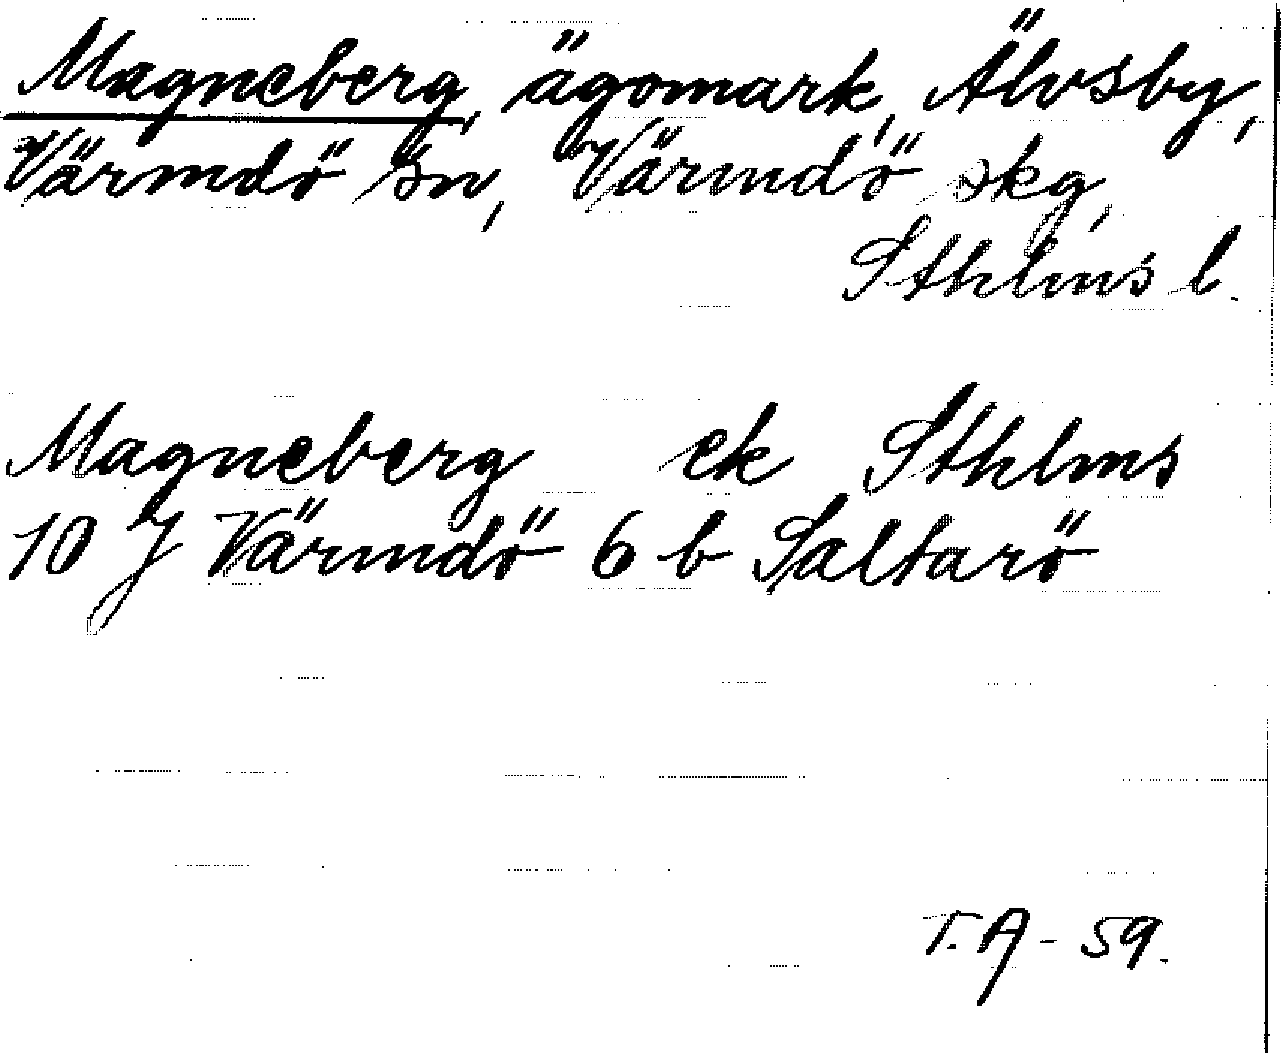 Magneberg, ägomark, Älvsby,
Värmdö sn, Värmdö skg,
Sthlms l.
Magneberg ek Sthlms
10 J Värmdö 6 b Saltarö
T. A - 59.